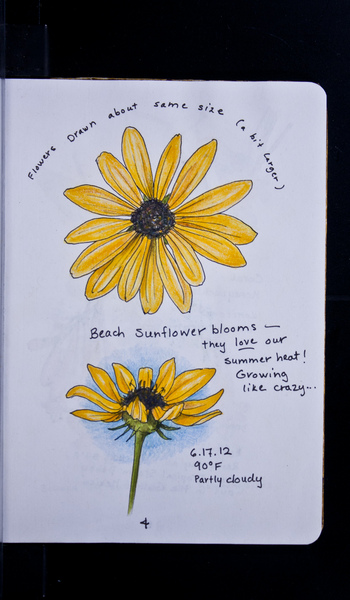 Flowers Drawn about same size (a bit larger)
Beach Sunflower blooms —
they love our
summer heat!
Growing
like crazy...
6.17.12
90°F
Partly cloudy
4